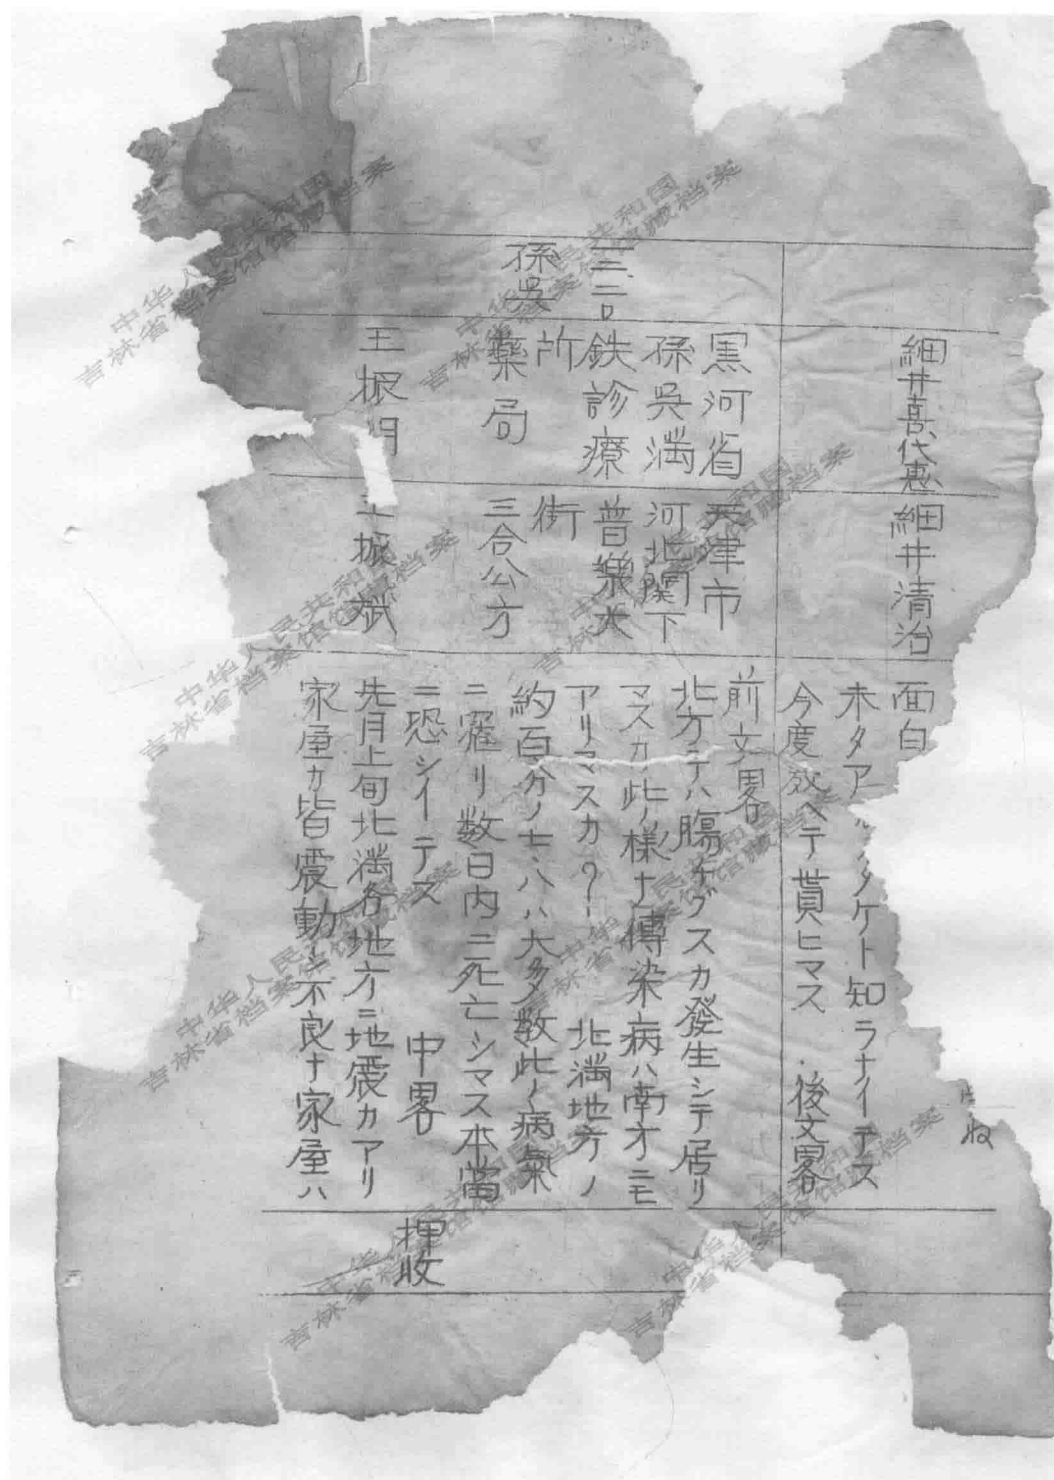 細井喜代恵
細井清治
面白
未タア
タケト知ラナイテス
今度教ヘテ貰ヒマス 後文畧
収
三二〇
孫呉
黒河省
孫呉満
鉄診療
所
薬局
王振明
天津市
河北関下
普楽大
街
三合公方
王振斌
前文畧
北方テハ腸チブスカ發生シテ居リ
マスカ此ノ様ナ傳染病ハ南方ニモ
アリマスカ?ー 北満地方ノ
約百分ノ七、八ハ大多数此ノ病氣
ニ罹リ数日内ニ死亡シマス本當
ニ恐シイテス 中畧
先月上旬北満各地方ニ地震カアリ
家屋カ皆震動シ不良ナ家屋ハ
押收
中华人民共和国
吉林省档案馆馆藏档案